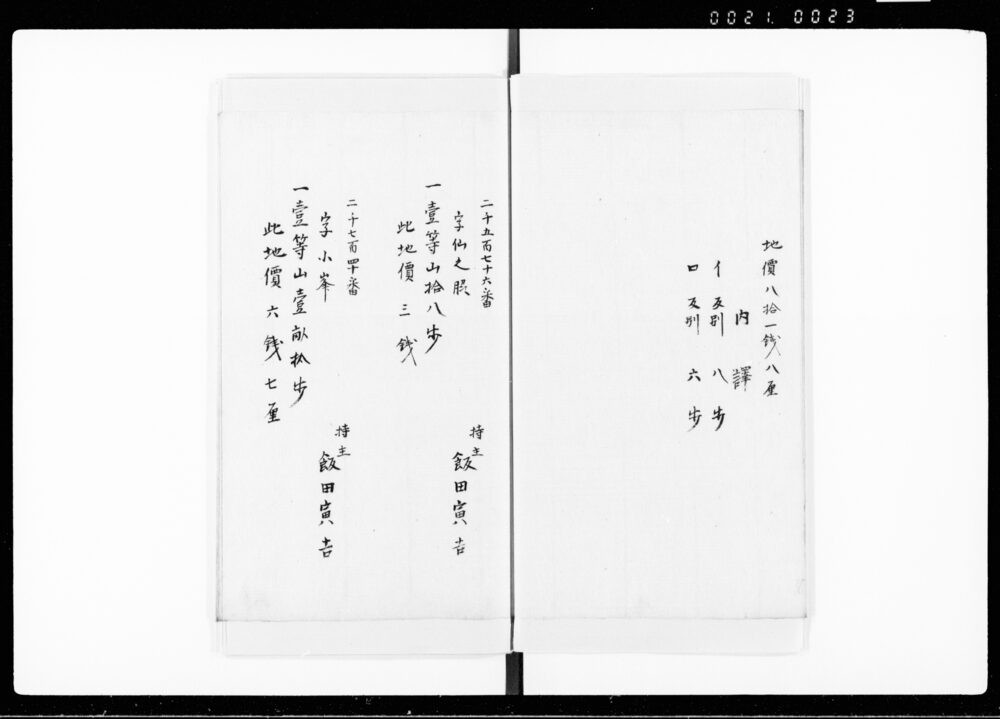 0021. 0023
地價八拾一銭八厘
内譯
イ反別 八歩
ロ反別 六歩
二千五百七十六番
字仙之
一壹等山拾八歩
此地價 三銭
持主
飯田寅吉
二千七百四十番
字小峯
一壹等山壹畝拾歩
此地價 六銭七厘
持主
飯田寅吉